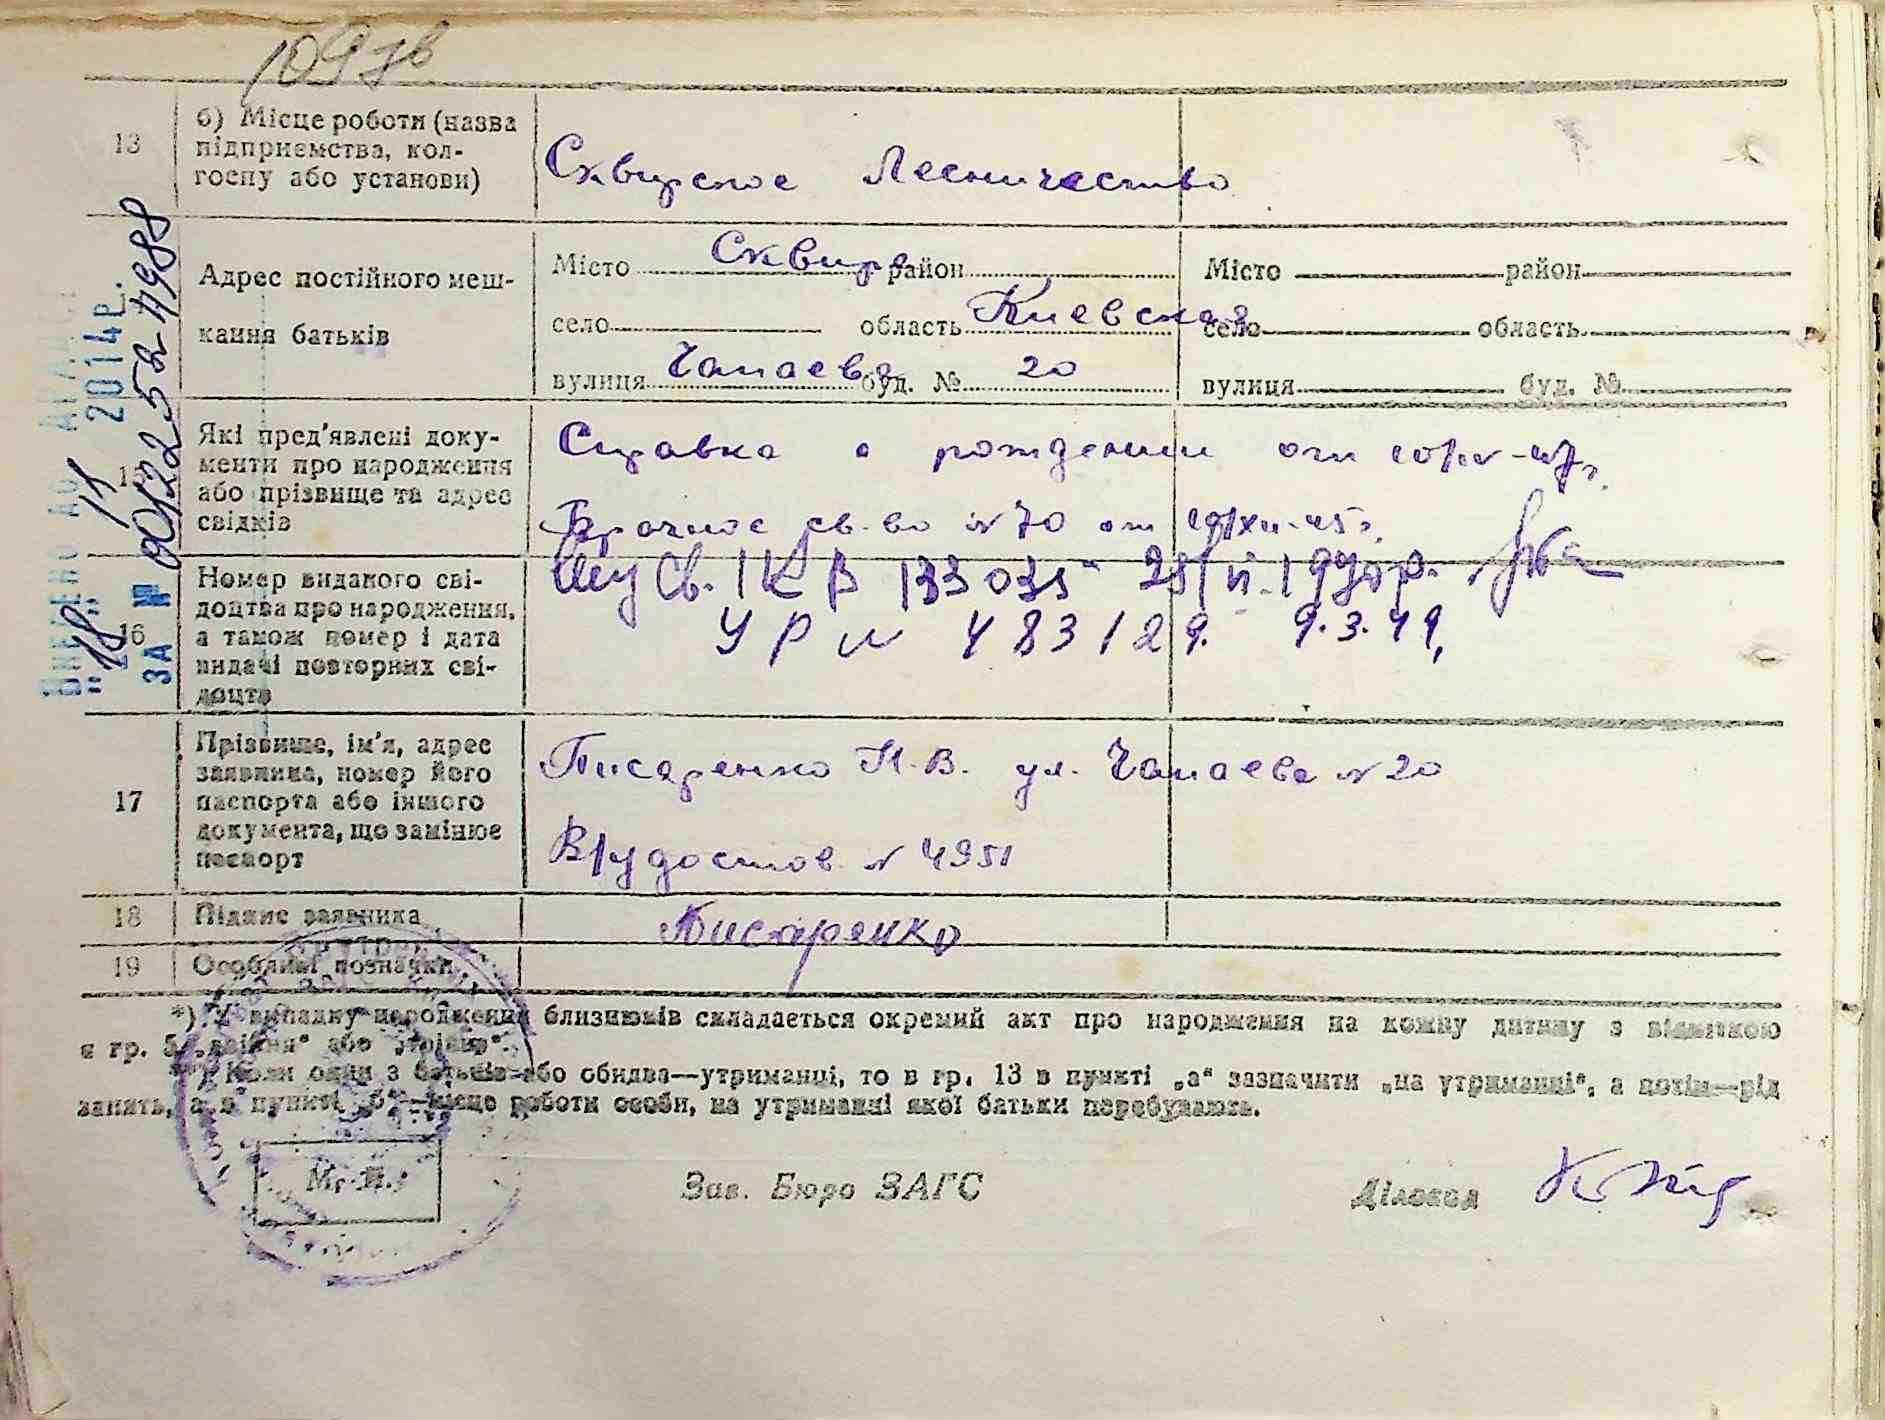 109 зв
13
б) Місце роботи (назва
підприємства, кол-
госпу або установи)
Сквирское Лесничество
Адрес постійного меш-
кання батьків
Місто Сквира район
село область Киевская
вулиця Чапаева буд. № 20
Місто район
село область
вулиця буд. №
Які пред'явлені доку-
менти про народження
або прізвище та адрес
свідків
Справка о рождении от
Брачное св-во №70 от 19/XII-45г.
16
Номер виданого сві-
доцтва про народження,
а також номер і дата
видачі повторних сві-
доцтв
Св. І КВ 133035 1970р.
УР № 483129. 9.3.49,
17
Прізвище, ім'я, адрес
заявника, номер його
паспорта або іншого
документа, що замінює
паспорт
Писаренко Н.В. ул. Чапаева №20
В/удостов. № 4951
18
Підпис заявника
Писаренко
19
Особливі позначки
*) У випадку народження близнюків складається окремий акт про народження на кожну дитину з відміткою
в гр. 5 „двійня" або „трійня".
**) Коли один з батьків або обидва—утриманці, то в гр. 13 в пункті „а" зазначити „на утриманці", а потім—рід
занять, а в пункті „б"—місце роботи особи, на утриманні якої батьки перебувають.
М. П.
Зав. Бюро ЗАГС
Діловод
ВНЕСЕНО ДО
"18" 11 2014р.
ЗА № 0012252-4988